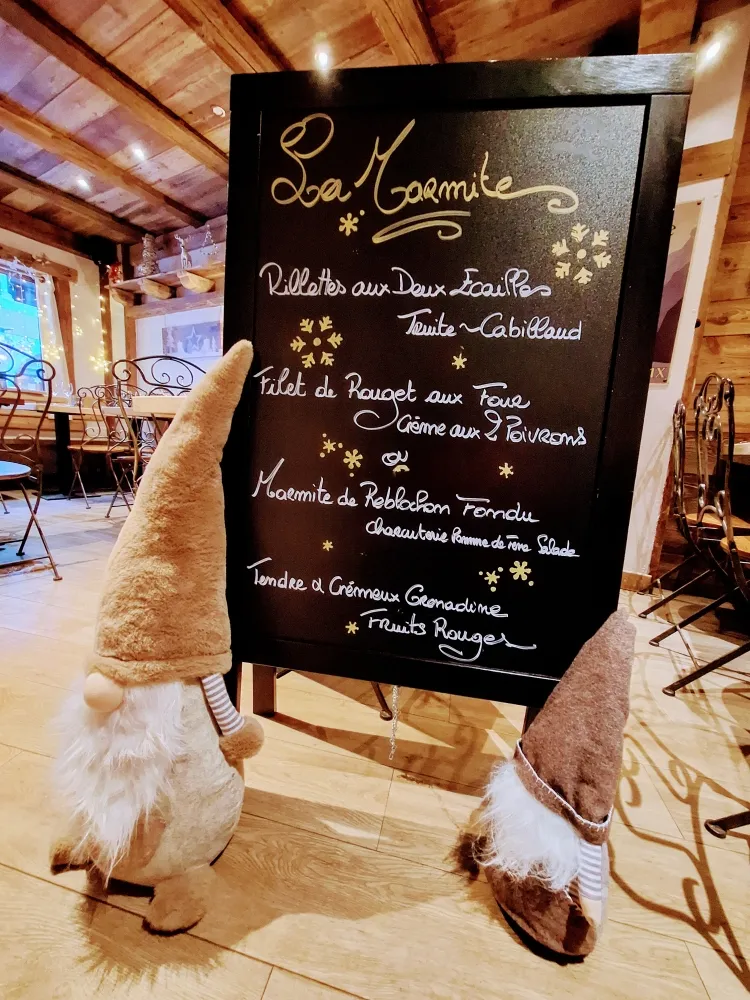 La Marmite
Rillettes aux Deux Ecailles
Truite ~ Cabillaud
Filet de Rouget aux Four
Crème aux 2 Poivrons
ou
Marmite de Reblochon Fondu
charcuterie Pomme de Terre Salade
Tendre & Crémeux Grenadine
Fruits Rouges